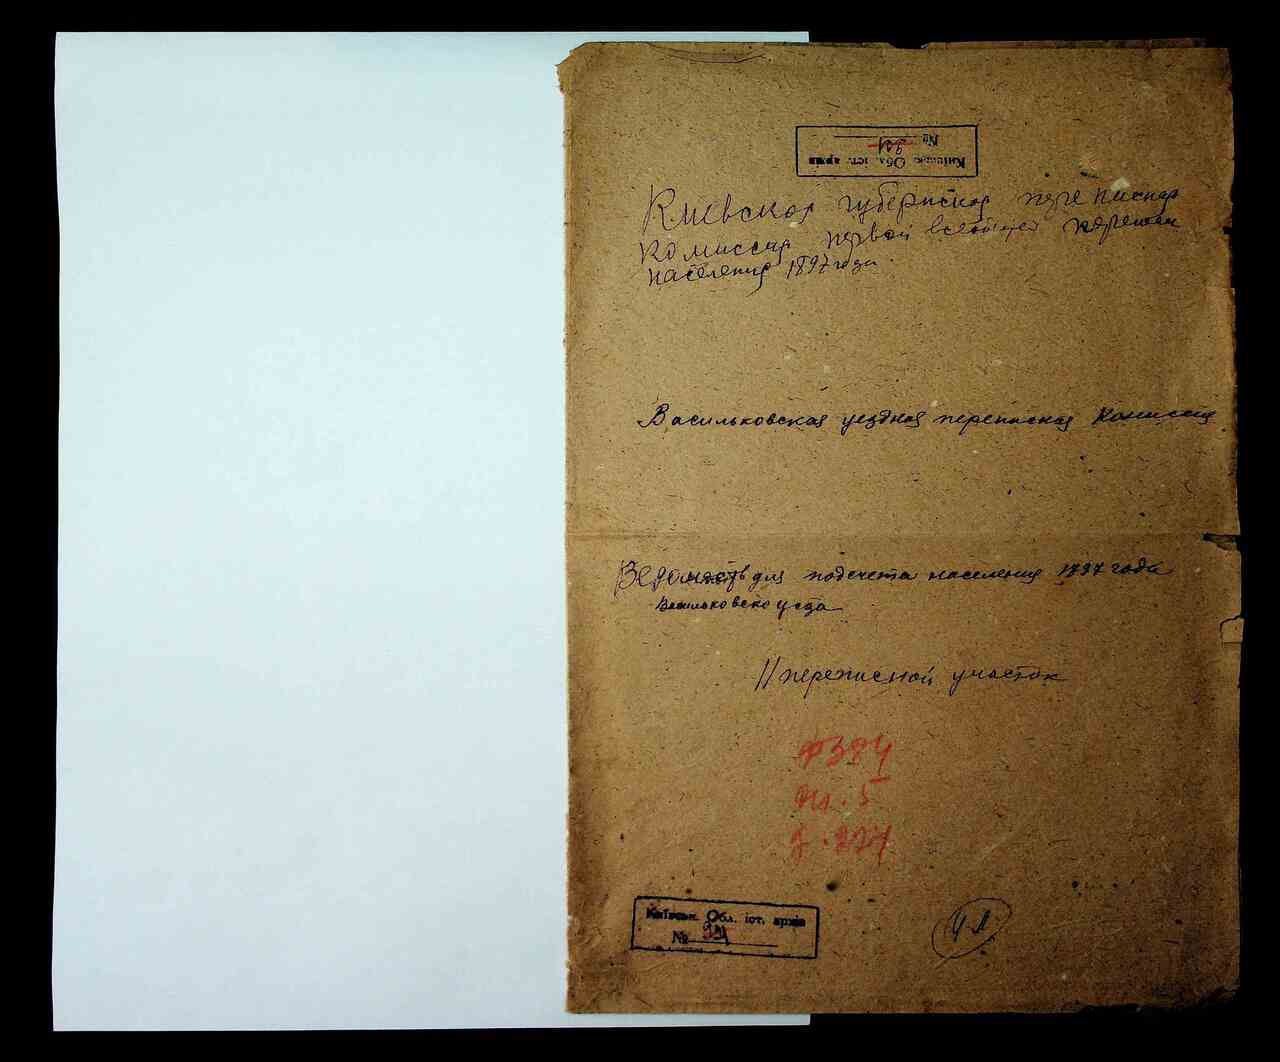 Київськ. Обл. іст. архів
№
Киевская губернская перепиская
комиссия первой всеобщей перепеси
населения 1897 года
Васильковская уездная переписная Комиссия
Ведомость для подсчета населения 1897 года
Васильковско уезда
II переписной участок
Ф 384
оп. 5
Київськ. Обл. іст. архів
№